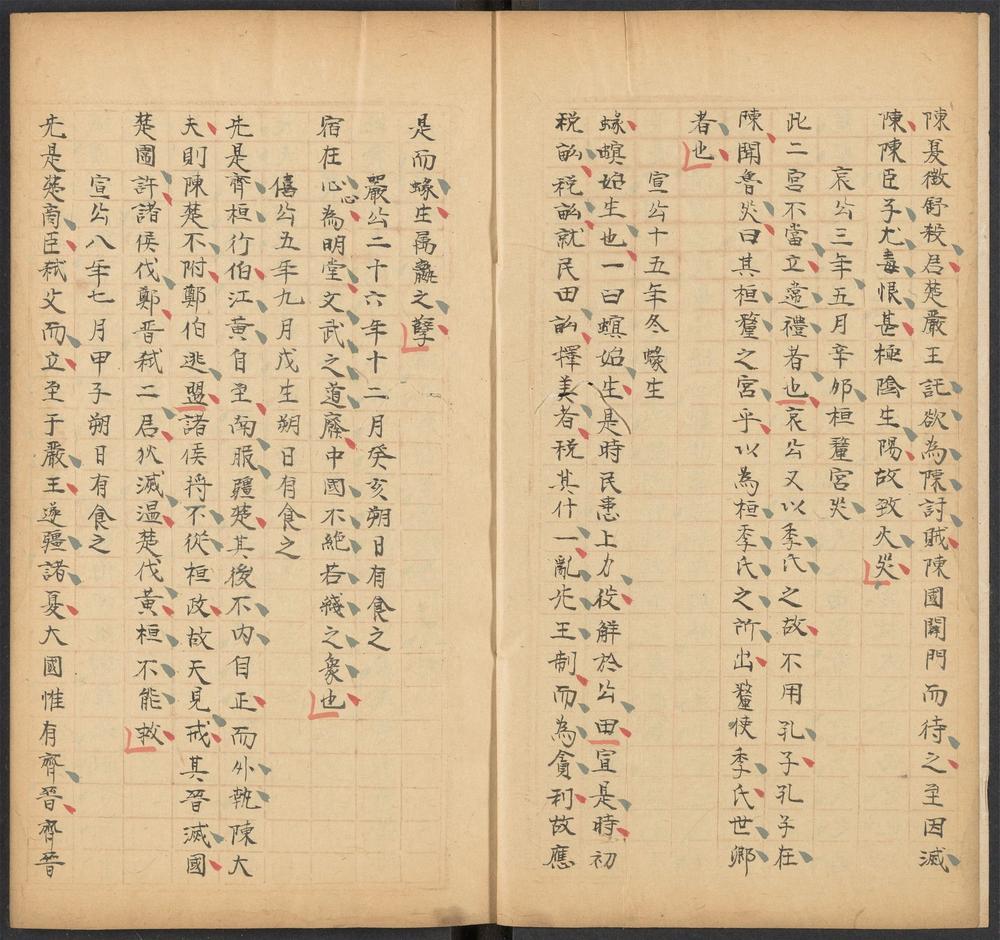 陳夏徵舒殺君楚嚴王託欲為陳討賊陳國闢門而待之至因滅
陳陳臣子尤毒恨甚極陰生陽故致火災
哀公三年五月辛卯桓釐宮災
此二宮不當立當禮者也哀公又以季氏之故不用孔子孔子在
陳聞魯災曰其桓釐之宮乎以為桓季氏之所出釐使季氏世卿
者也
宣公十五年冬蝝生
蝝螟始生也一曰螟始生是時民患上力役解於公田宣是時初
税畝税畝就民田畝擇美者税其什一亂先王制而為貪利故應
是而蝝生屬蠃之孽
嚴公二十六年十二月癸亥朔日有食之
宿在心心為明堂文武之道廢中國不絕若綫之象也
僖公五年九月戊生朔日有食之
先是齊桓行伯江黃自至南服彊楚其後不内自正而外執陳大
夫則陳楚不附鄭伯逃盟諸侯将不從桓政故天見戒其晉滅國
楚圍許諸侯伐鄭晋弑二君狄滅温楚伐黃桓不能救
宣公八年七月甲子朔日有食之
先是楚商臣弑父而立至于嚴王遂彊諸夏大國惟有齊晉齊晉